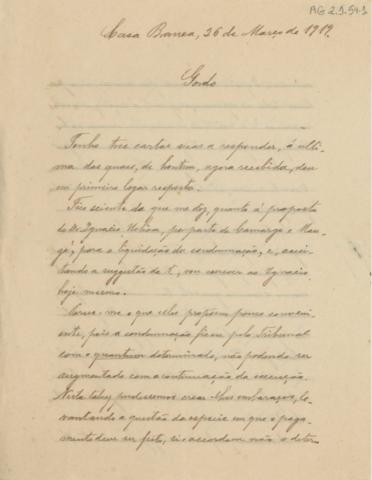 AG 2.1.54-1
Casa Branca, 26 de Março de 1919.
Gordo
Tenho tres cartas suas a responder, á ulti-
ma das quaes, de hontem, agora recebida, dou
em primeiro logar resposta.
Fico sciente do que me diz, quanto á proposta
do Dr. Ignacio Uchôa, por parte de Camargo e
para a liquidação da condemnação, e, accei-
tando a suggestão de t., vou escrever ao Ignacio
hoje mesmo.
me o que elles propõem pouco conveni-
ente, pois a condemnação ficou pelo Tribunal
com o quantum determinado, não podendo ser
augmentado com a continuação da execução.
Nesta talvez pudessemos crear-lhes embaraços, le-
vantando a questão da especie em que o paga-
mento deve ser feito, si o accordam não o deter-